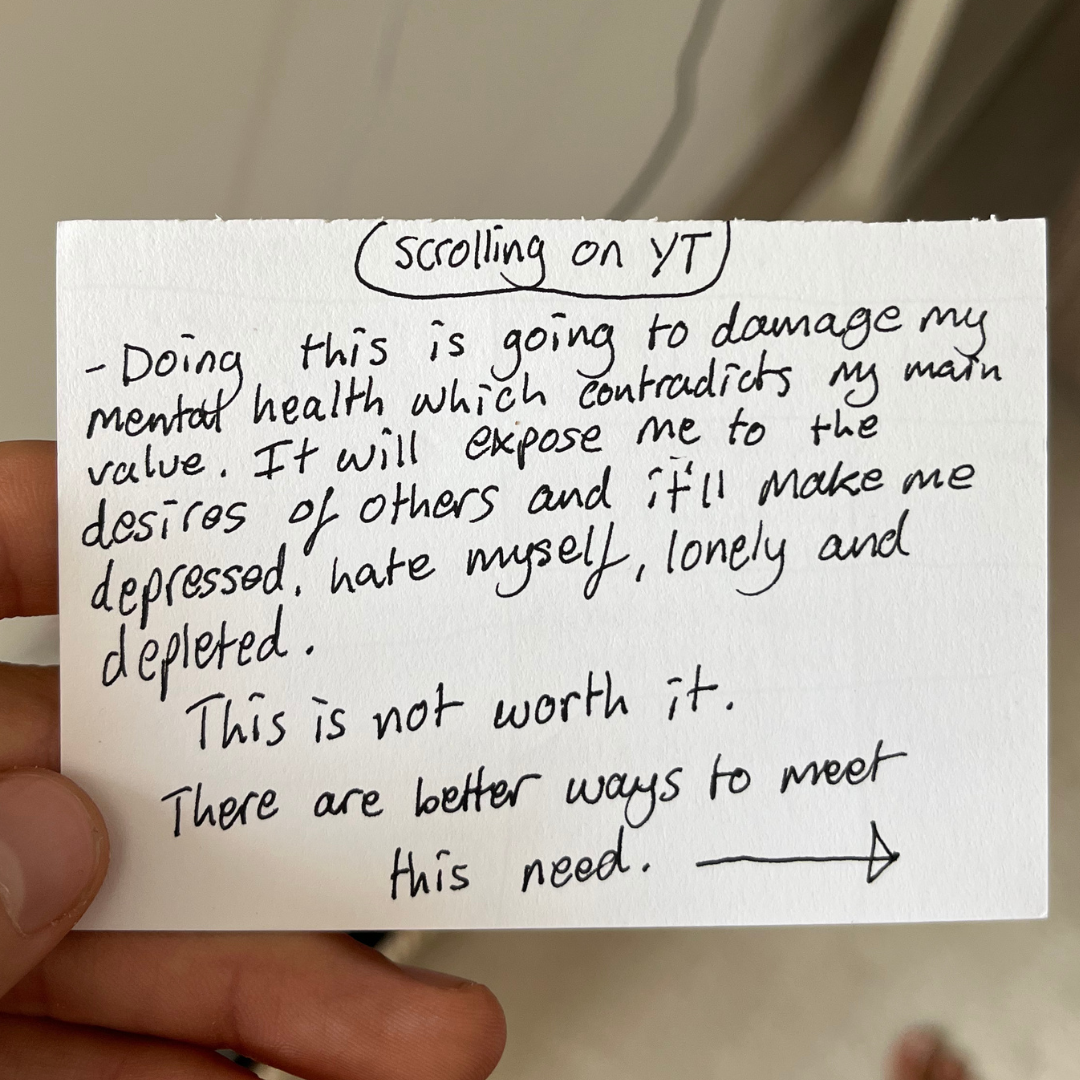 scrolling on YT
- Doing this is going to damage my
mental health which contradicts my main
value. It will expose me to the
desires of others and it'll make me
depressed, hate myself, lonely and
depleted.
This is not worth it.
There are better ways to meet
this need. →